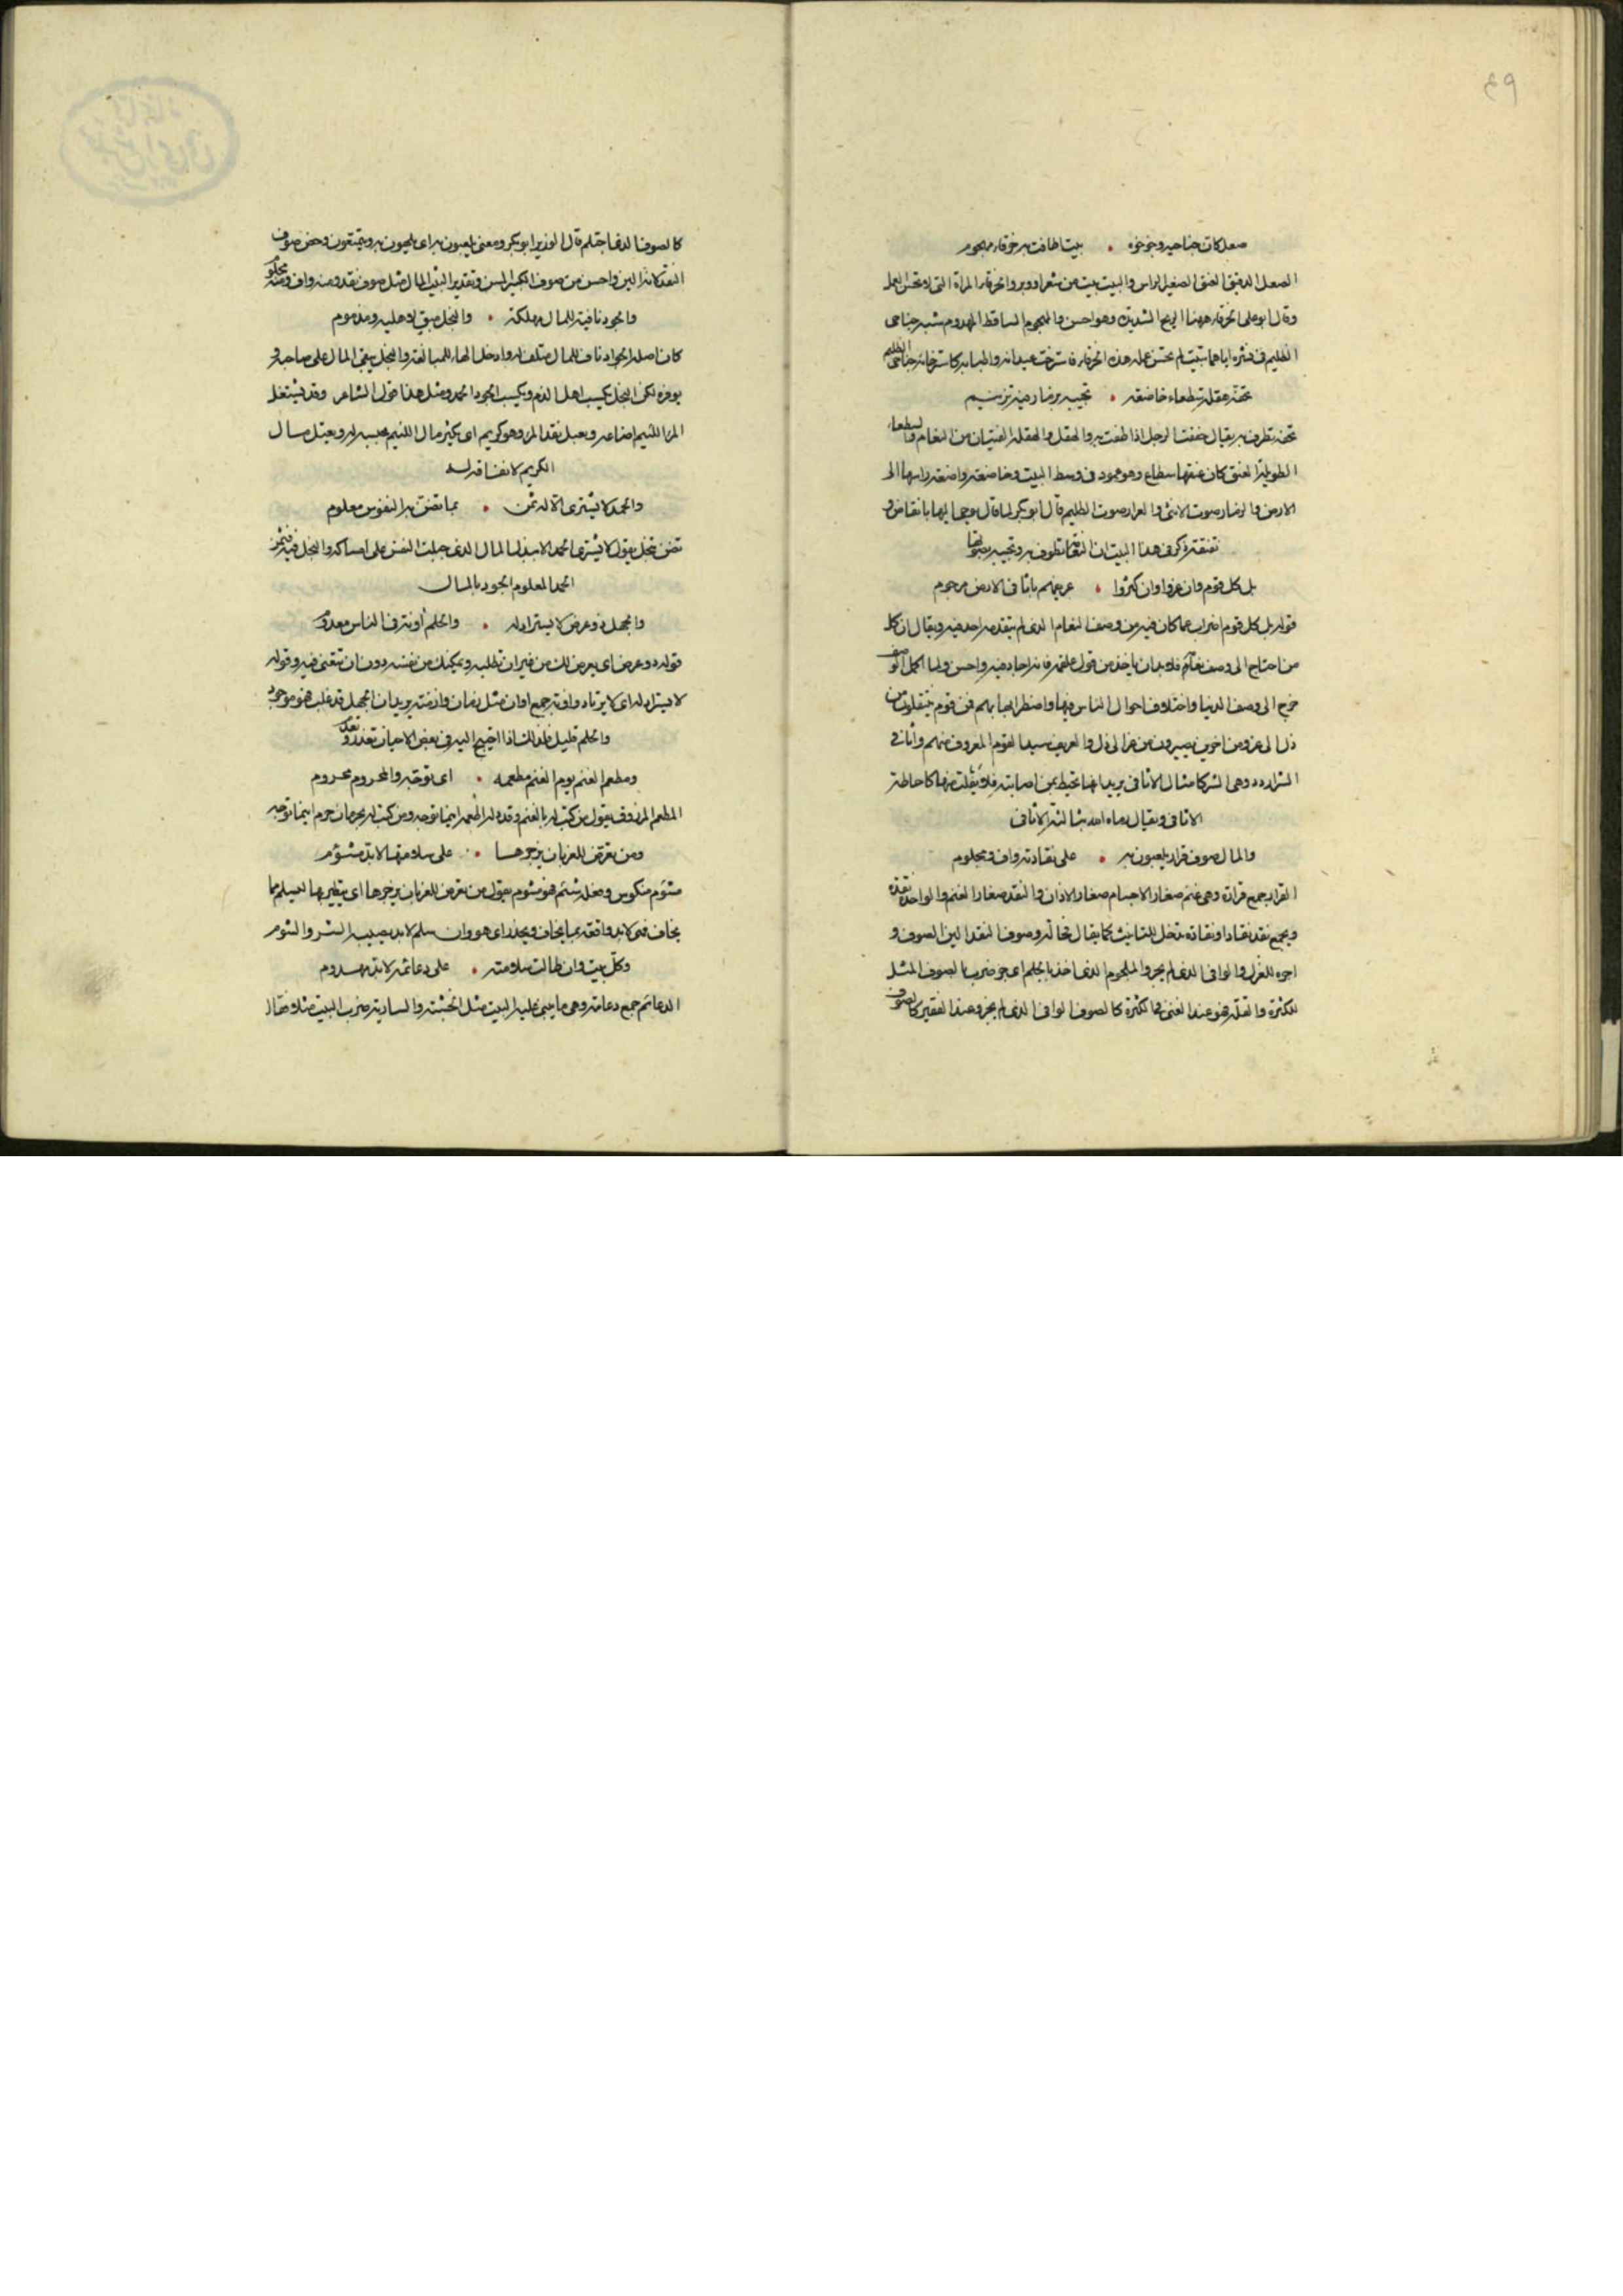 ٤٩
صعل كان جناحيه وجؤجؤه • بيت اطافت به خرقاء مهجوم
الصعل الدقيق العنق الصغير الراس والبيت بيت من شعر او وبر والخرقاء المراة التى لا تحسن العمل
وقال ابو على الخرقاء ههنا الريح الشديدة وهو احسن والمهجوم الساقط المهدوم شبه جناحى
الظليم فى نشره اياهما ببيت لم تحسن عمله هذه الخرقاء فاسترخت عيدانه واطنابه كاسترخاء جناحى الظليم
تحفه هقلة سطعاء خاضعة • تجيبه بزمار فيه ترنيم
تحفه تطوف به يقال حففت الرجل اذا طفت به والهقل والهقلة الفتيان من النعام والسطعاء
الطويلة العنق كان عنقها سطاع وهو عمود فى وسط البيت وخاضعة واضعة راسها الى
الارض والزمار صوت الانثى والعرار صوت الظليم قال ابو بكر لما قال يوحى اليها بانقاض و
نقنقة ذكر فى هذا البيت ان النعامة تطوف به وتجيبه بصوتها
بل كل قوم وان عزوا وان كثروا • عريفهم باثافى الارض مرجوم
قوله بل كل قوم اضراب عما كان فيه من وصف النعام الذى لم يتقدمه احد فيه ويقال ان كل
من احتاج الى وصف نعام فلا بد ان ياخذ من قول علقمة فانه اجاد فيه واحسن ولما اكمل الوصف
خرج الى وصف الدنيا واختلاف احوال الناس فيها واضطرابها بهم فمن قوم ينتقلون من
ذل الى عز ومن اخرين يصيرون من عز الى ذل والعريف سيد القوم المعروف منهم واثافى
الشر اردده وهى الشر كامثال الاثافى يريد انها تحيط بمن اصابته فلا يفلت منها كاحاطة
الاثافى ويقال رماه الله بثالثة الاثافى
والمال صوف قرار يلعبون به • على نقادته واف ومجلوم
القرار جمع قرارة وهى غنم صغار الاجسام صغار الاذان والنقد صغار الغنم والواحدة نقدة
ويجمع نقد نقادا ونقادة تدخل للتانيث كما يقال فحالة وصوف النقد الين الصوف و
اجوه للغزل والوافى الذى لم يجز والمجلوم الذى اخذ بالجلم اى جز ضرب بالصوف المثل
للكثرة والقلة فهو عند الغنى فى الكثرة كالصوف الوافى الذى لم يجز وعند الفقير كالصوف
كالصوف الذى اجتلم قال الوزير ابو بكر ومعنى يلعبون به اى يلهون به ويتمتعون وخص صوف
النقد لانه الين واحسن من صوف الكبير السن وتقدير البيت المال مثل صوف نقد ومنه واف ومنه مجلوم
والجود نافية للمال مهلكة • والبخل مبق لاهليه ومذموم
كان اصله الجواد ناف للمال متلف له وادخل الهاء للمبالغة والبخل يبقى المال على صاحبه و
يوفره لكن البخل يكسب اهله الذم ويكسب الجود الحمد ومثل هذا قول الشاعر وقد يشتغل
المرا اللئيم اضاعه ويعبل نقد المرا وهو كريم اى يكثر مال اللئيم بحبسه له ويعتل مسال
الكريم لانفاقه له
والحمد لا يشترى الا له ثمن • مما تضن به النفوس معلوم
تضن تبخل يقول لا يشترى الحمد الا ببذل المال الذى جبلت النفس على امساكه والبخل فيه فثمن
الحمد المعلوم الجود بالمال
والجهل ذو عرض لا يستراد له • والحلم آونة فى الناس معدوم
قوله ذو عرض اى يعرض لك من غير ان تطلبه ويمكنك من نفسه دون ان تبتغى فيه وقوله
لا يستراد له اى لا يرتاد واونة جمع اوان مثل زمان وازمنة يريد ان الجهل قد غلب فهو موجود
والحلم قليل فلذلك اذا احتيج اليه فى بعض الاحيان تعذر وفقد
ومطعم الغنم يوم الغنم مطعمه • انى توجه والمحروم محروم
المطعم المرزوق يقول من كتب له بالغنم وقدر له اطعمه اينما توجه ومن كتب له بحرمان حرم اينما توجه
ومن تعرض للغربان يزجرها • على سلامته لا بد مشؤم
مشؤم منكوس وفعله شئم فهو مشؤم يقول من تعرض للغربان يزجرها اى يتطير بها ليسلم مما
يخاف فهى لا بد واقعة بما يخاف ويحذر اى هو وان سلم لا بد يصيبه الشر والشؤم
وكل بيت وان طالت سلامته • على دعائمه لا بد مهدوم
الدعائم جمع دعامة وهى ما يبنى عليه البيت مثل الخشبة والسارية ضرب البيت مثلا فقال